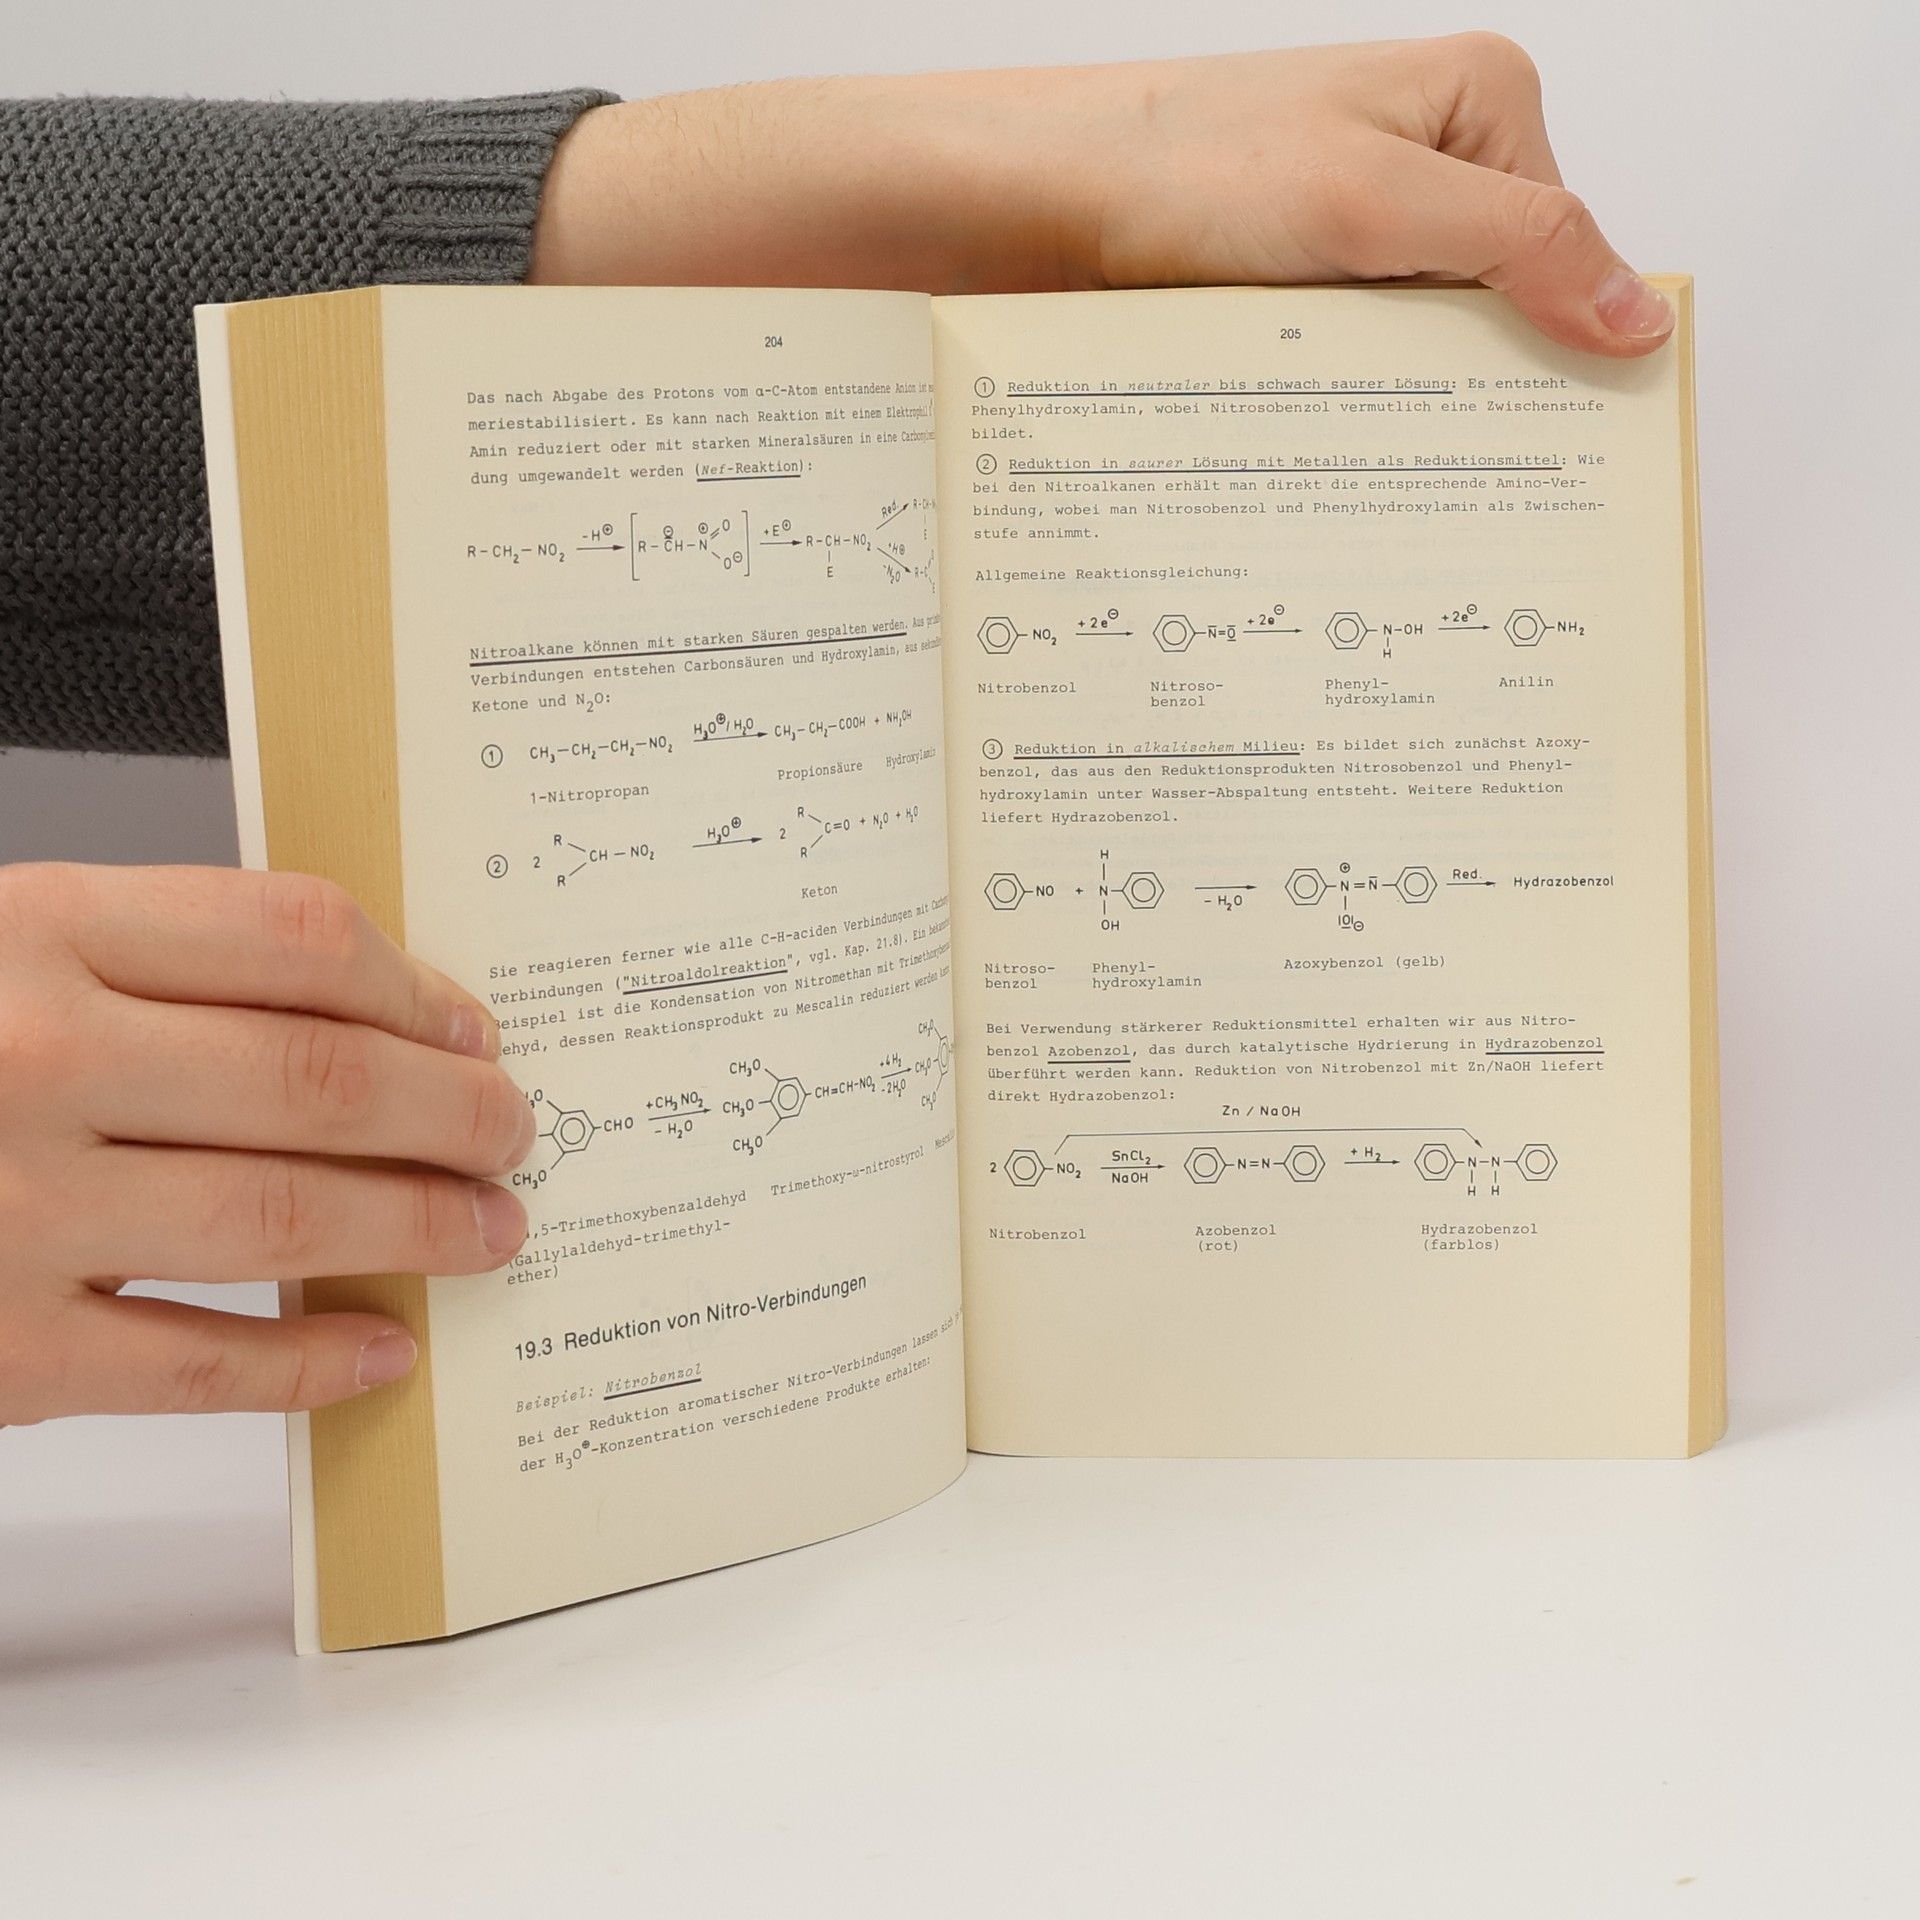 204
Das nach Abgabe des Protons vom α-C-Atom entstandene Anion ist
meriestabilisiert. Es kann nach Reaktion mit einem Elektrophil
Amin reduziert oder mit starken Mineralsäuren in eine
dung umgewandelt werden (Nef-Reaktion):
R-CH₂-NO₂ -H⊕ [R-CH-N O O⊖] +E⊕ R-CH-NO₂ Red.
E
Nitroalkane können mit starken Säuren gespalten werden. Aus
Verbindungen entstehen Carbonsäuren und Hydroxylamin, aus
Ketone und N₂O:
① CH₃-CH₂-CH₂-NO₂ H₃O⊕/H₂O CH₃-CH₂-COOH + NH₂OH
1-Nitropropan Propionsäure Hydroxylamin
② 2 R R CH-NO₂ H₃O⊕ 2 R R C=O + N₂O + H₂O
Keton
Sie reagieren ferner wie alle C-H-aciden Verbindungen mit
Verbindungen ("Nitroaldolreaktion", vgl. Kap. 21.8). Ein
Beispiel ist die Kondensation von Nitromethan mit
ehyd, dessen Reaktionsprodukt zu Mescalin reduziert werden kann
CH₃O CHO +CH₃NO₂ -H₂O CH₃O CH₃O CH₃O CH=CH-NO₂ +4H₂ -2H₂O CH₃O CH₃O CH₃O
,5-Trimethoxybenzaldehyd Trimethoxy-ω-nitrostyrol
(Gallylaldehyd-trimethyl-
ether)
19.3 Reduktion von Nitro-Verbindungen
Beispiel: Nitrobenzol
Bei der Reduktion aromatischer Nitro-Verbindungen lassen sich
der H₃O⊕-Konzentration verschiedene Produkte erhalten:
205
① Reduktion in neutraler bis schwach saurer Lösung: Es entsteht
Phenylhydroxylamin, wobei Nitrosobenzol vermutlich eine Zwischenstufe
bildet.
② Reduktion in saurer Lösung mit Metallen als Reduktionsmittel: Wie
bei den Nitroalkanen erhält man direkt die entsprechende Amino-Ver-
bindung, wobei man Nitrosobenzol und Phenylhydroxylamin als Zwischen-
stufe annimmt.
Allgemeine Reaktionsgleichung:
NO₂ +2e⊖ N̄=O̲̅ +2e⊖ N-OH +2e⊖ NH₂
H
Nitrobenzol Nitroso- Phenyl- Anilin
benzol hydroxylamin
③ Reduktion in alkalischem Milieu: Es bildet sich zunächst Azoxy-
benzol, das aus den Reduktionsprodukten Nitrosobenzol und Phenyl-
hydroxylamin unter Wasser-Abspaltung entsteht. Weitere Reduktion
liefert Hydrazobenzol.
H ⊕
NO + N - H₂O N=N̄ Red. Hydrazobenzol
OH |O̲|⊖
Nitroso- Phenyl- Azoxybenzol (gelb)
benzol hydroxylamin
Bei Verwendung stärkerer Reduktionsmittel erhalten wir aus Nitro-
benzol Azobenzol, das durch katalytische Hydrierung in Hydrazobenzol
überführt werden kann. Reduktion von Nitrobenzol mit Zn/NaOH liefert
direkt Hydrazobenzol:
Zn / NaOH
2 NO₂ SnCl₂ NaOH N=N + H₂ N-N
H H
Nitrobenzol Azobenzol Hydrazobenzol
(rot) (farblos)